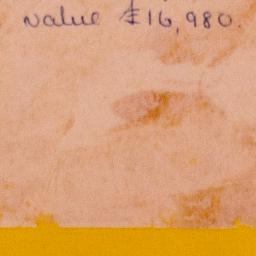 value £16,980.